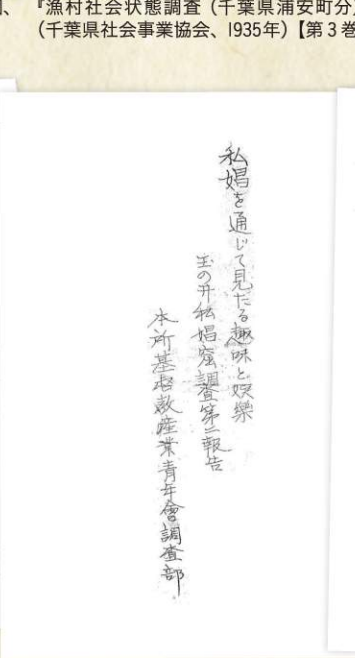 『漁村社会状態調査（千葉県浦安町分）
（千葉県社会事業協会、1935年）【第３巻
私娼を通じて見たる趣味と娯樂
玉の井私娼窟調査第二報告
本所基督教産業青年會調査部